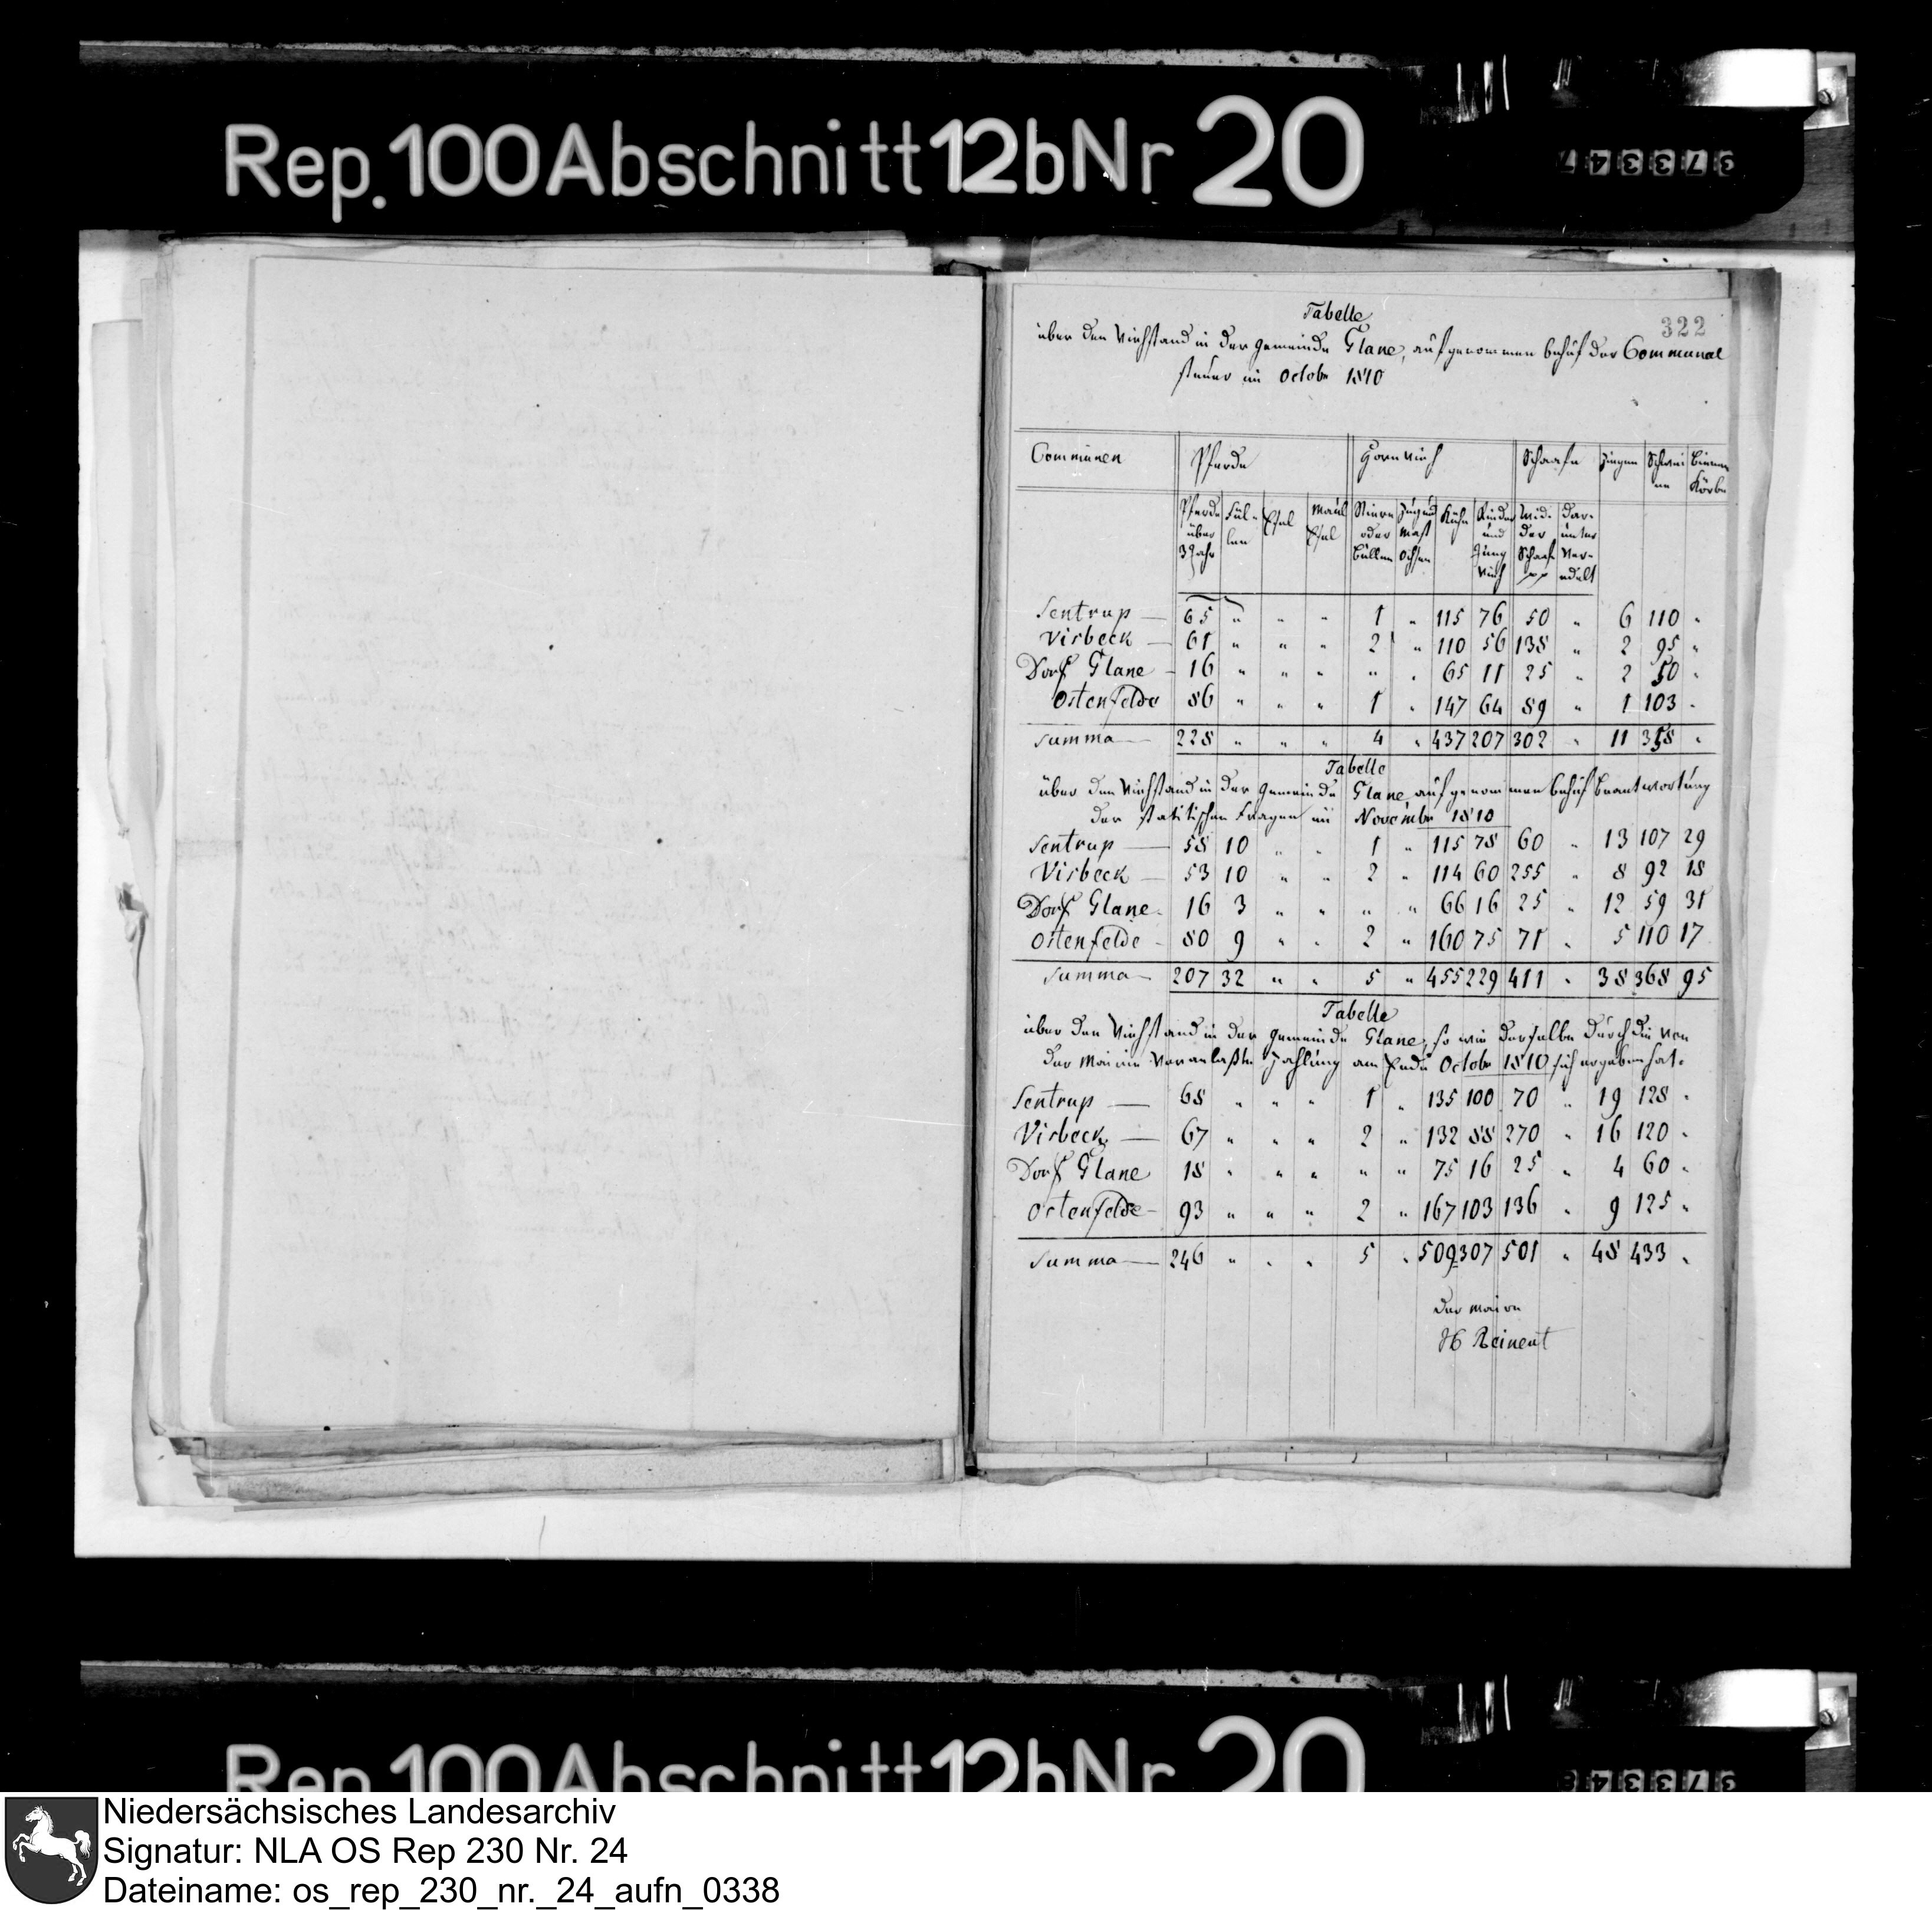 Rep. 100 Abschnitt 12b Nr 20
373347
322
Tabelle
über den Viehstand in der Gemeinde Glane, aufgenommen behuf der Communal
steuer im Octobr 1810
Communen Pferde Hornvieh Schaafe Ziegen Schwei
ne Bienen
Körbe
Pferde
über
3 Jahr Fül-
len Esel Maul
Esel Stiere
oder
Bullen Zug und
Mast
Ochsen Kühe Rinder
und
Jung
Vieh Wid-
der
Schaafe
pp Dar-
unter
Ver-
edelt
Sentrup — 65 " " " 1 " 115 76 50 " 6 110 "
Visbeck — 61 " " " 2 " 110 56 138 " 2 95 "
Dorf Glane - 16 " " " " " 65 11 25 " 2 50 "
Ostenfelde 86 " " " 1 " 147 64 89 " 1 103 "
Summa — 228 " " " 4 " 437 207 302 " 11 358 "
Tabelle
über den Viehstand in der Gemeinde Glane, aufgenommen behuf Beantwortung
der statitischen Fragen im Novembr 1810
Sentrup — 58 10 " " 1 " 115 78 60 " 13 107 29
Visbeck — 53 10 " " 2 " 114 60 255 " 8 92 18
Dorf Glane - 16 3 " " " " 66 16 25 " 12 59 31
Ostenfelde - 80 9 " " 2 " 160 75 71 " 5 110 17
Summa — 207 32 " " 5 " 455 229 411 " 38 368 95
Tabelle
über den Viehstand in der Gemeinde Glane, so wie derselbe durch die von
der Mairie veranlaßte Zahlung am Ende Octobr 1810 sich ergeben hat.
Sentrup — 68 " " " 1 " 135 100 70 " 19 128 "
Visbeck — 67 " " " 2 " 132 88 270 " 16 120 "
Dorf Glane 18 " " " " " 75 16 25 " 4 60 "
Ostenfelde - 93 " " " 2 " 167 103 136 " 9 125 "
Summa — 246 " " " 5 " 509 307 501 " 48 433 "
Der Maire
Rep. 100 Abschnitt 12b Nr 20
Niedersächsisches Landesarchiv
Signatur: NLA OS Rep 230 Nr. 24
Dateiname: os_rep_230_nr._24_aufn_0338